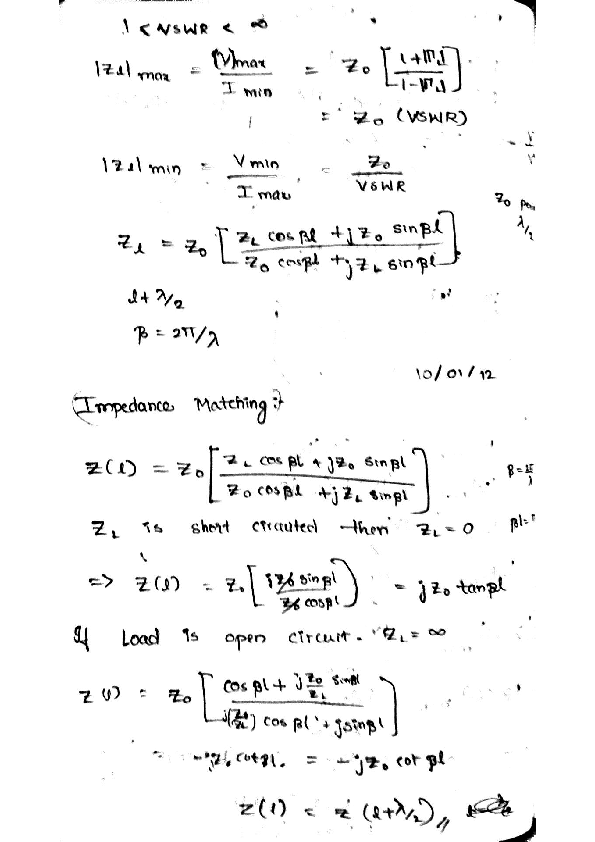 1 < VSWR < ∞
|Zl| max = |V|max / I min = Z₀ [ (1+|Γ|) / (1-|Γ|) ]
= Z₀ (VSWR)
|Zl| min = V min / I max = Z₀ / VSWR
Z₀
λ/2
Zl = Z₀ [ (Z_L cos βl + j Z₀ sin βl) / (Z₀ cos βl + j Z_L sin βl) ]
l + λ/2
β = 2π/λ
10/01/12
Impedance Matching :-
Z(l) = Z₀ [ (Z_L cos βl + j Z₀ sin βl) / (Z₀ cos βl + j Z_L sin βl) ]
β =
Z_L is short circuited then Z_L = 0
βl =
=> Z(l) = Z₀ [ j Z₀ sin βl / Z₀ cos βl ] = j Z₀ tan βl
If Load is open circuit. Z_L = ∞
Z(l) = Z₀ [ (cos βl + j Z₀/Z_L sin βl) / ((Z₀/Z_L) cos βl + j sin βl) ]
= -j Z₀ cot βl. = -j Z₀ cot βl
Z(l) = Z (l+λ/2) //